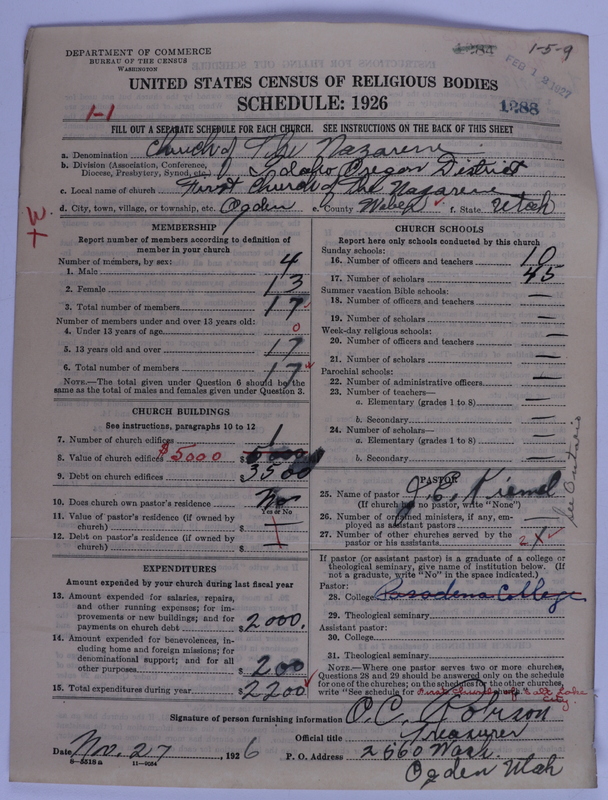 DEPARTMENT OF COMMERCE
BUREAU OF THE CENSUS
WASHINGTON
1284
1-5-9
FEB 1 1927
UNITED STATES CENSUS OF RELIGIOUS BODIES
SCHEDULE: 1926
1288
1-1
FILL OUT A SEPARATE SCHEDULE FOR EACH CHURCH. SEE INSTRUCTIONS ON THE BACK OF THIS SHEET
a. Denomination Church of The Nazarene
b. Division (Association, Conference, Diocese, Presbytery, Synod, etc.) Idaho Oregon District
c. Local name of church First Church of The Nazarene
d. City, town, village, or township, etc. Ogden e. County Weber f. State Utah
MEMBERSHIP
Report number of members according to definition of
member in your church
Number of members, by sex:
1. Male 4
2. Female 13
3. Total number of members 17
Number of members under and over 13 years old:
4. Under 13 years of age 0
5. 13 years old and over 17
6. Total number of members 17
NOTE.—The total given under Question 6 should be the
same as the total of males and females given under Question 3.
CHURCH BUILDINGS
See instructions, paragraphs 10 to 12
7. Number of church edifices 1
8. Value of church edifices $5000 $ 5000
9. Debt on church edifices $ 3500
10. Does church own pastor's residence? No
Yes or No
11. Value of pastor's residence (if owned by
church) $ —
12. Debt on pastor's residence (if owned by
church) $
EXPENDITURES
Amount expended by your church during last fiscal year
13. Amount expended for salaries, repairs,
and other running expenses; for im-
provements or new buildings; and for
payments on church debt $ 2000.
14. Amount expended for benevolences, in-
cluding home and foreign missions; for
denominational support; and for all
other purposes $ 200
15. Total expenditures during year $ 2200
CHURCH SCHOOLS
Report here only schools conducted by this church
Sunday schools:
16. Number of officers and teachers 10
17. Number of scholars 45
Summer vacation Bible schools:
18. Number of officers and teachers —
19. Number of scholars —
Week-day religious schools:
20. Number of officers and teachers —
21. Number of scholars —
Parochial schools:
22. Number of administrative officers —
23. Number of teachers—
a. Elementary (grades 1 to 8) —
b. Secondary —
24. Number of scholars—
a. Elementary (grades 1 to 8) —
b. Secondary —
PASTOR
25. Name of pastor J. E. Kiemel
(If church has no pastor, write "None")
26. Number of ordained ministers, if any, em-
ployed as assistant pastors —
27. Number of other churches served by the
pastor or his assistants 2 1
If pastor (or assistant pastor) is a graduate of a college or
theological seminary, give name of institution below. (If
not a graduate, write "No" in the space indicated.)
Pastor:
28. College Pasadena College
29. Theological seminary
Assistant pastor:
30. College
31. Theological seminary
NOTE.—Where one pastor serves two or more churches,
Questions 28 and 29 should be answered only on the schedule
for one of the churches; on the schedules for the other churches,
write "See schedule for First Church of Salt Lake
City.
Signature of person furnishing information O. C. Robison
Official title Treasurer
Date Nov. 27, 1926 P. O. Address 2560 Wash.
Ogden Utah
8-5518 a 11-9084